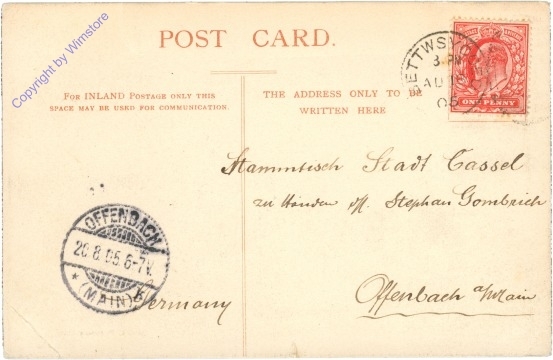 Copyright by Wimstore
POST CARD.
FOR INLAND POSTAGE ONLY THIS
SPACE MAY BE USED FOR COMMUNICATION.
THE ADDRESS ONLY TO BE
WRITTEN HERE
BETTWS
AU
05
ONE PENNY
Stammtisch Stadt Cassel
zu Händen Stephan Gombrich
Offenbach a/Main
Germany
OFFENBACH
20.8.05.6-7V.
* (MAIN)